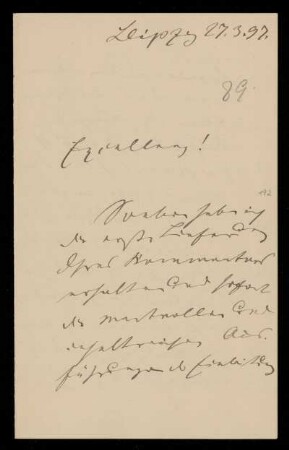 Leipzig 27.3.97.
89.
Excellenz!
Soeben habe ich
die erste Lieferung
Ihres Kommentars
erhalten und sofort
die wertvollen und
inhaltreichen Aus-
führungen der Einleitung